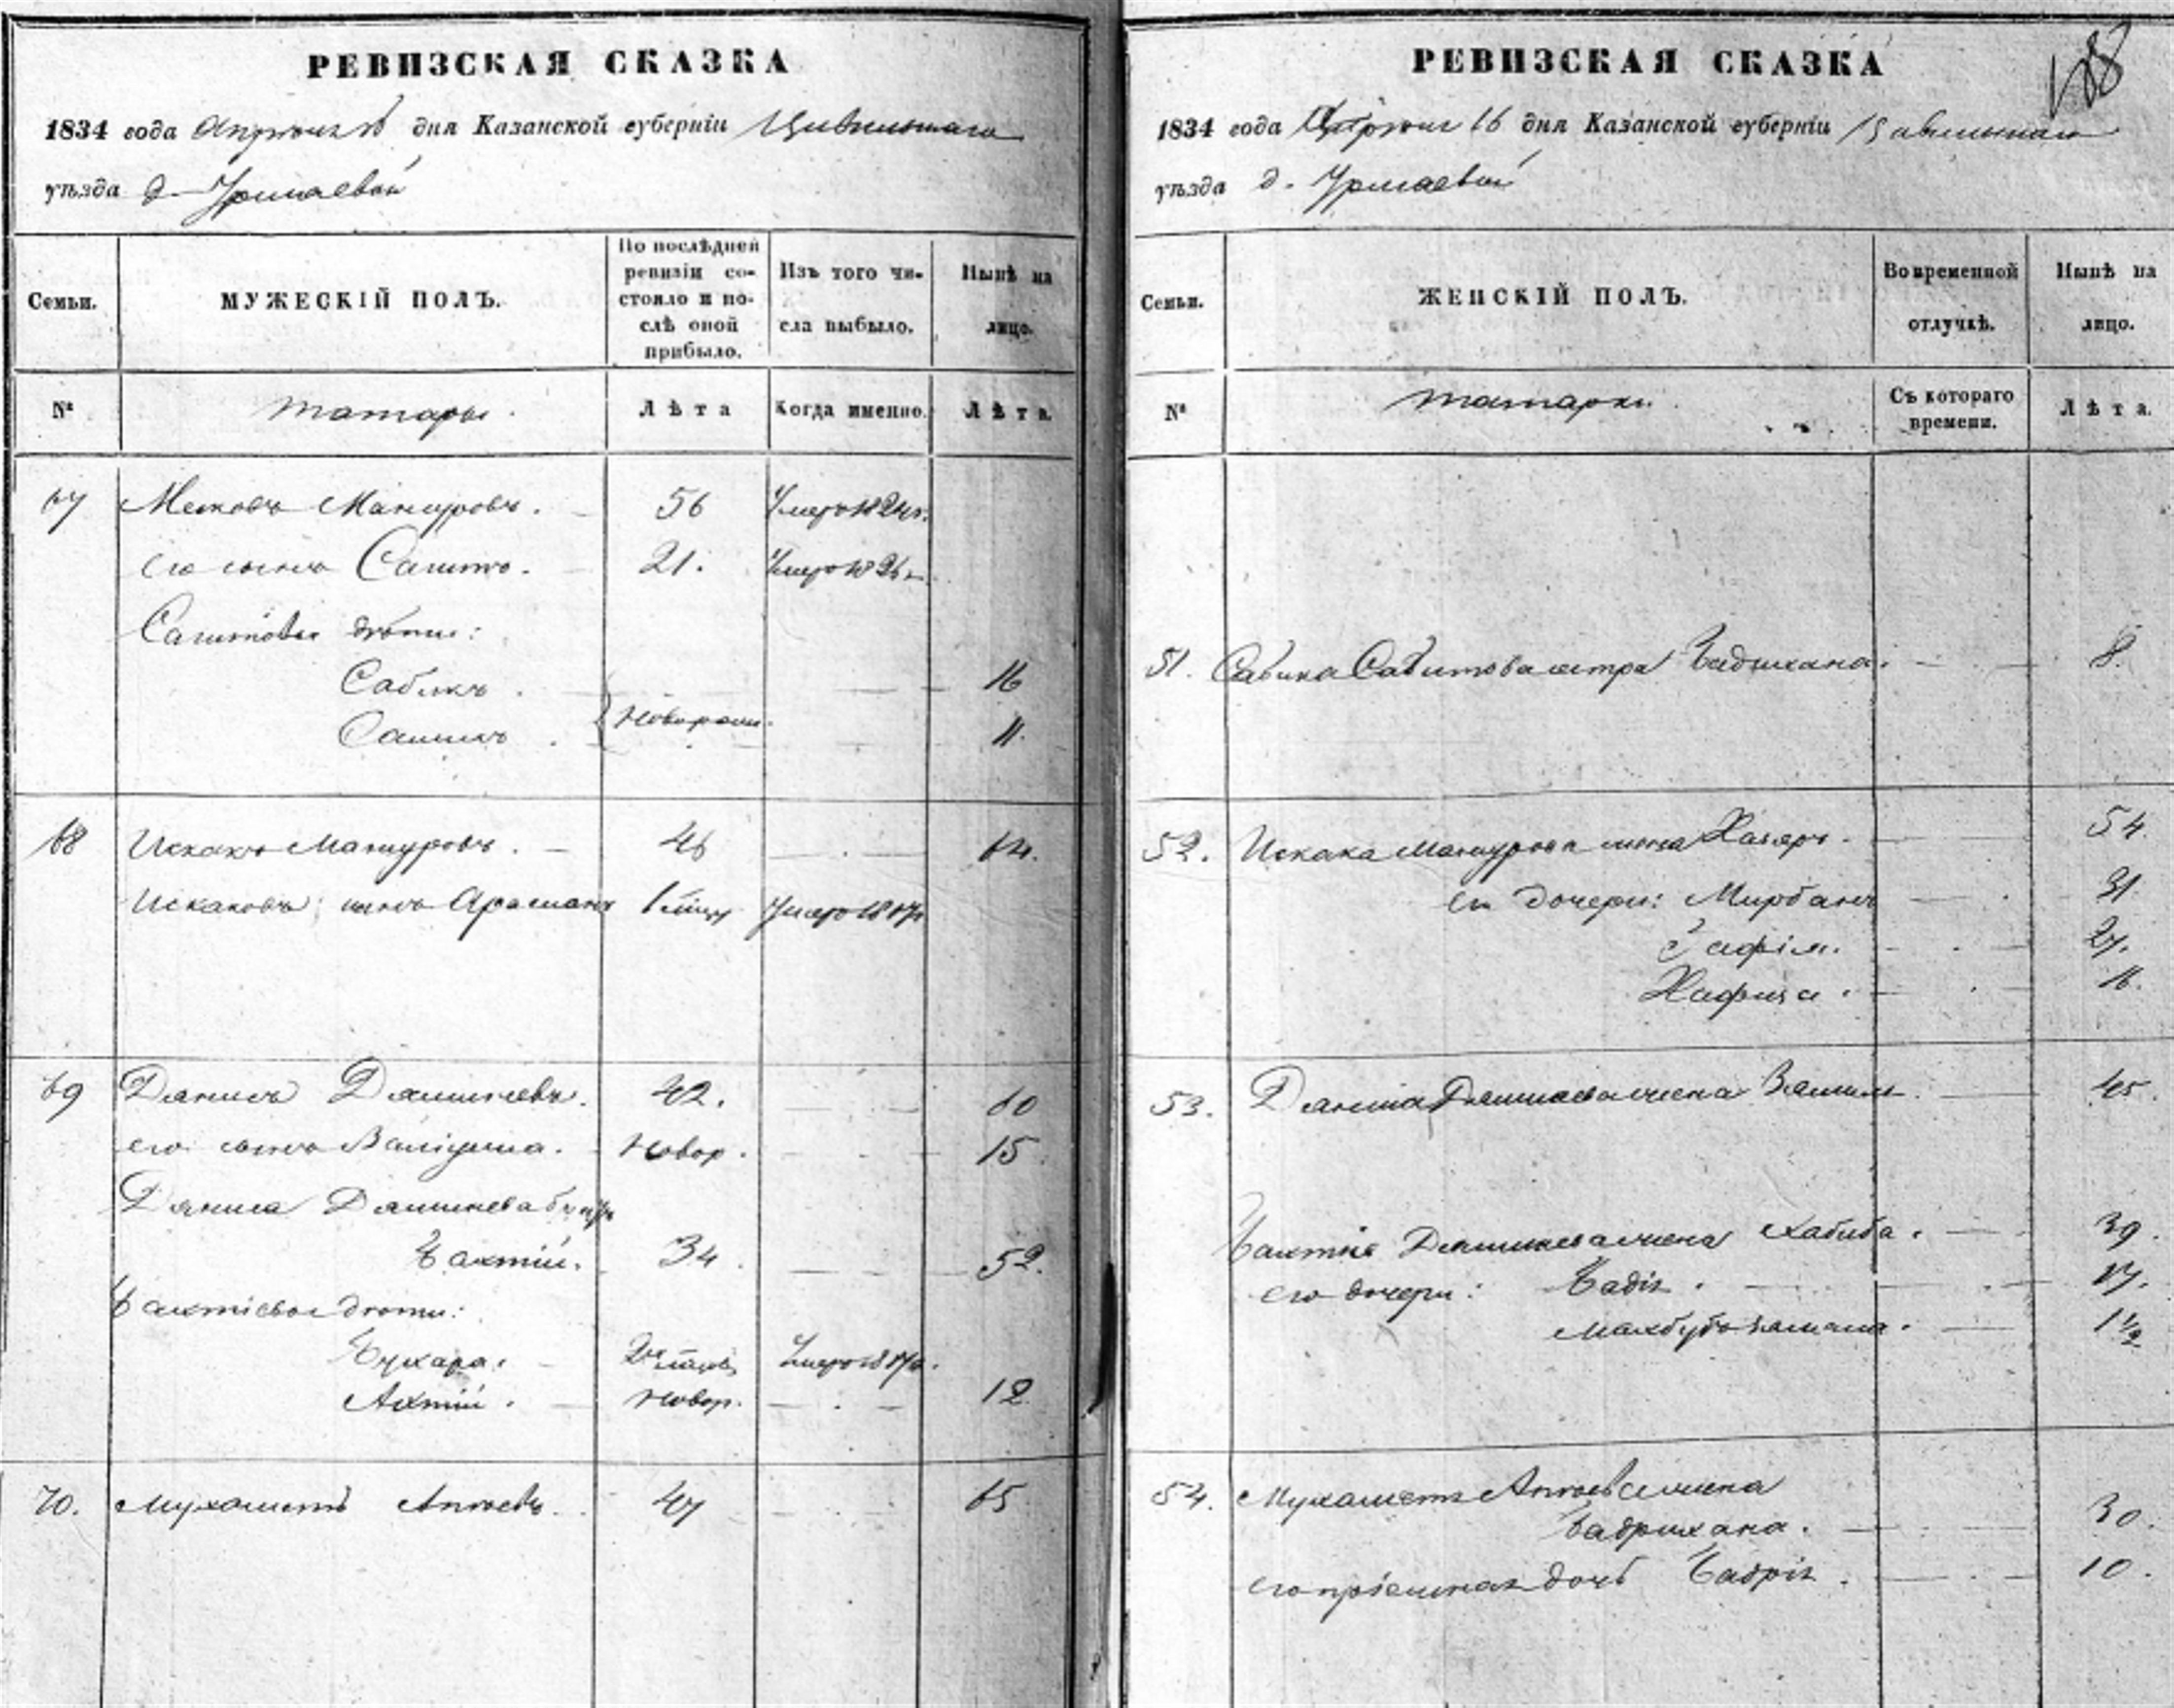 РЕВИЗСКАЯ СКАЗКА
1834 года Апреля 16 дня Казанской губерніи Цивильскаго
уѣзда д. Урмаевой
Семьи.
МУЖЕСКІЙ ПОЛЪ.
По послѣдней ревизіи состояло и послѣ оной прибыло.
Изъ того числа выбыло.
Нынѣ на лицо.
№
татары.
Лѣта
Когда именно.
Лѣта.
67 Мансуровъ. 56 Умеръ 1824г.
его сынъ Сагитъ. 21. Умеръ 1826
Сагитовы дѣти:
Сабикъ. 16
новорож.
11.
68 Искакъ Мансуровъ. 46 64.
Искаковъ сынъ Умеръ 1817
69 42. 60
его сынъ новор. 15
братъ
Бахтій. 34 52.
Бахтіевы дѣти:
Бухара. Умеръ 1817.
Ахтій. новор. 12
70. Мухаметъ 47 65
РЕВИЗСКАЯ СКАЗКА
188
1834 года Апреля 16 дня Казанской губерніи Цивильскаго
уѣзда д. Урмаевой
Семьи.
ЖЕНСКІЙ ПОЛЪ.
Во временной отлучкѣ.
Нынѣ на лицо.
№
татарки.
Съ котораго времени.
Лѣта.
51. Сабика Сабитова сестра Бадихана. 8.
52. Искака Мансурова жена 54.
ея дочери: Мирбану 31
27.
Хафиза. 16.
53. жена 45.
Бахтія жена Хабиба. 39.
его дочери: Бадія. 17.
Махбубзямала. 1½
54. Мухаметя жена
Бадрихана. 30.
его пріемная дочь Бадрія. 10.